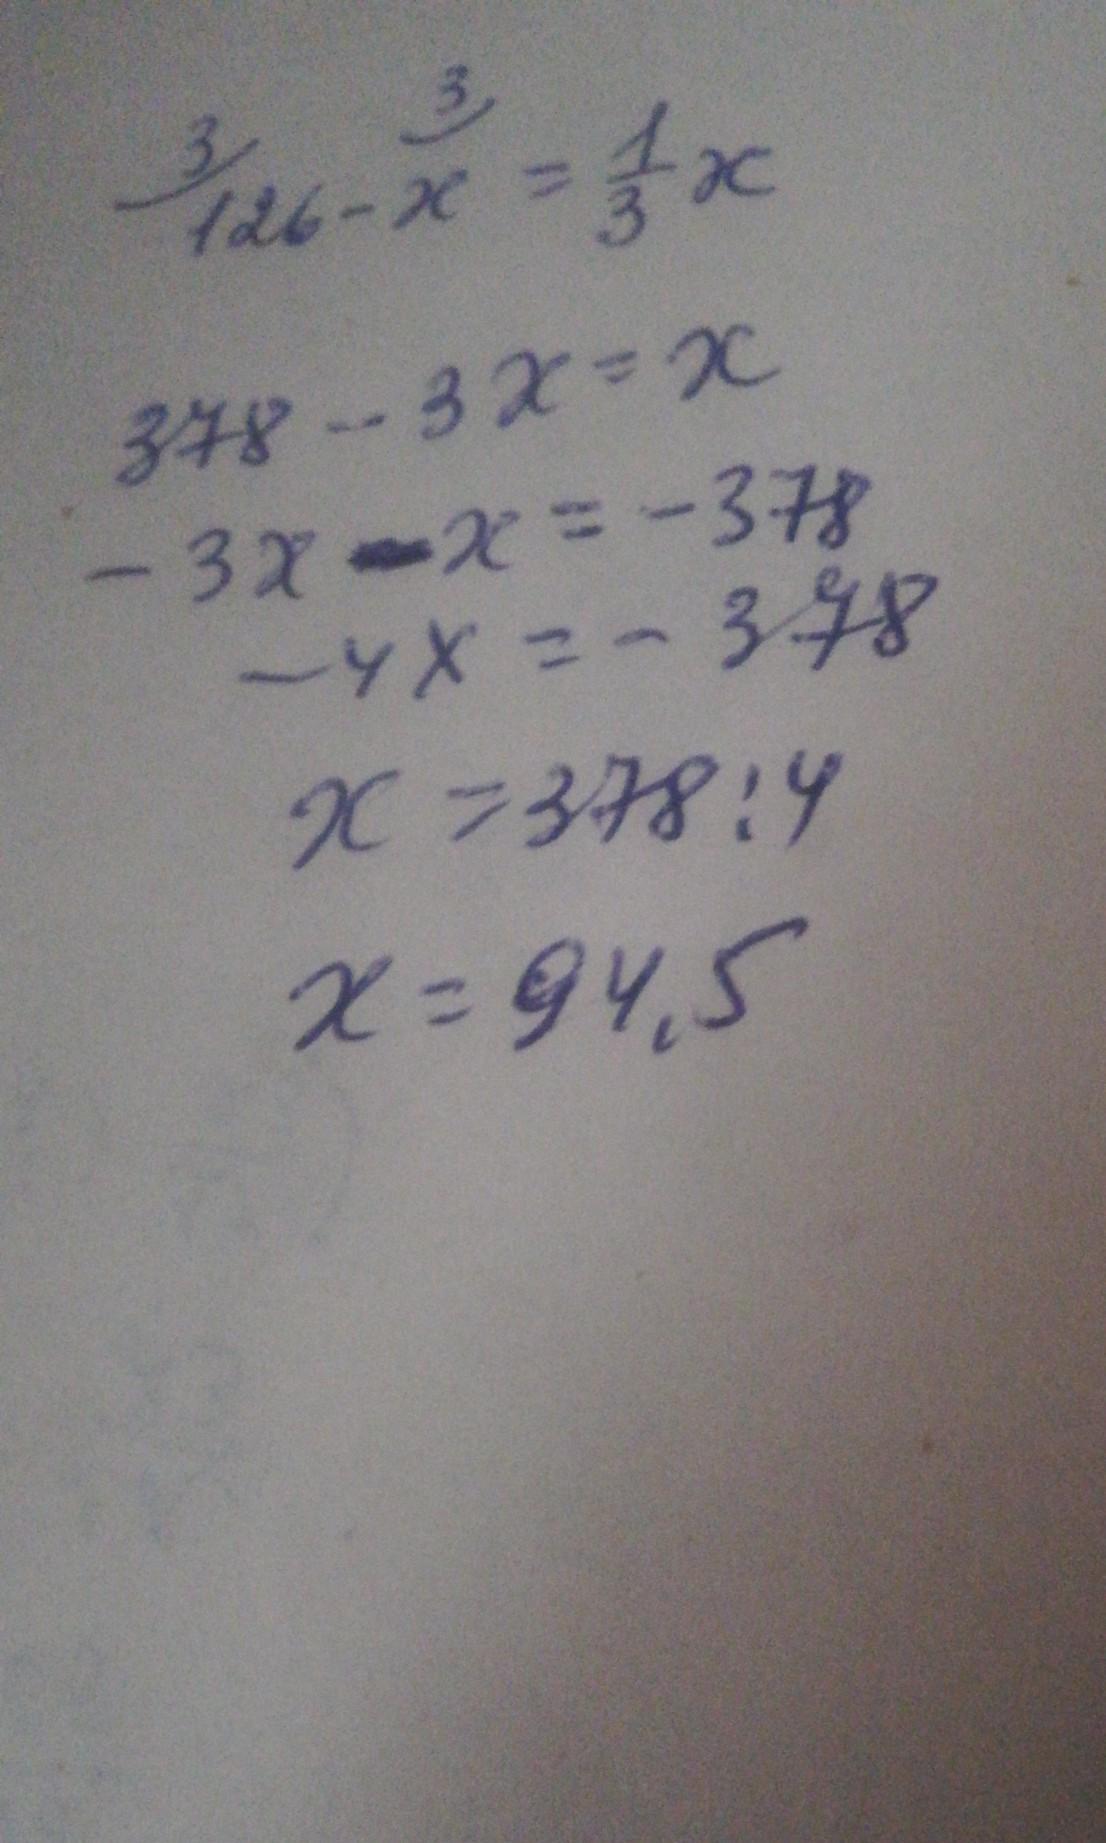 3/126 - 3/x = 1/3 x
378 - 3x = x
-3x - x = -378
-4x = -378
x = 378 : 4
x = 94,5